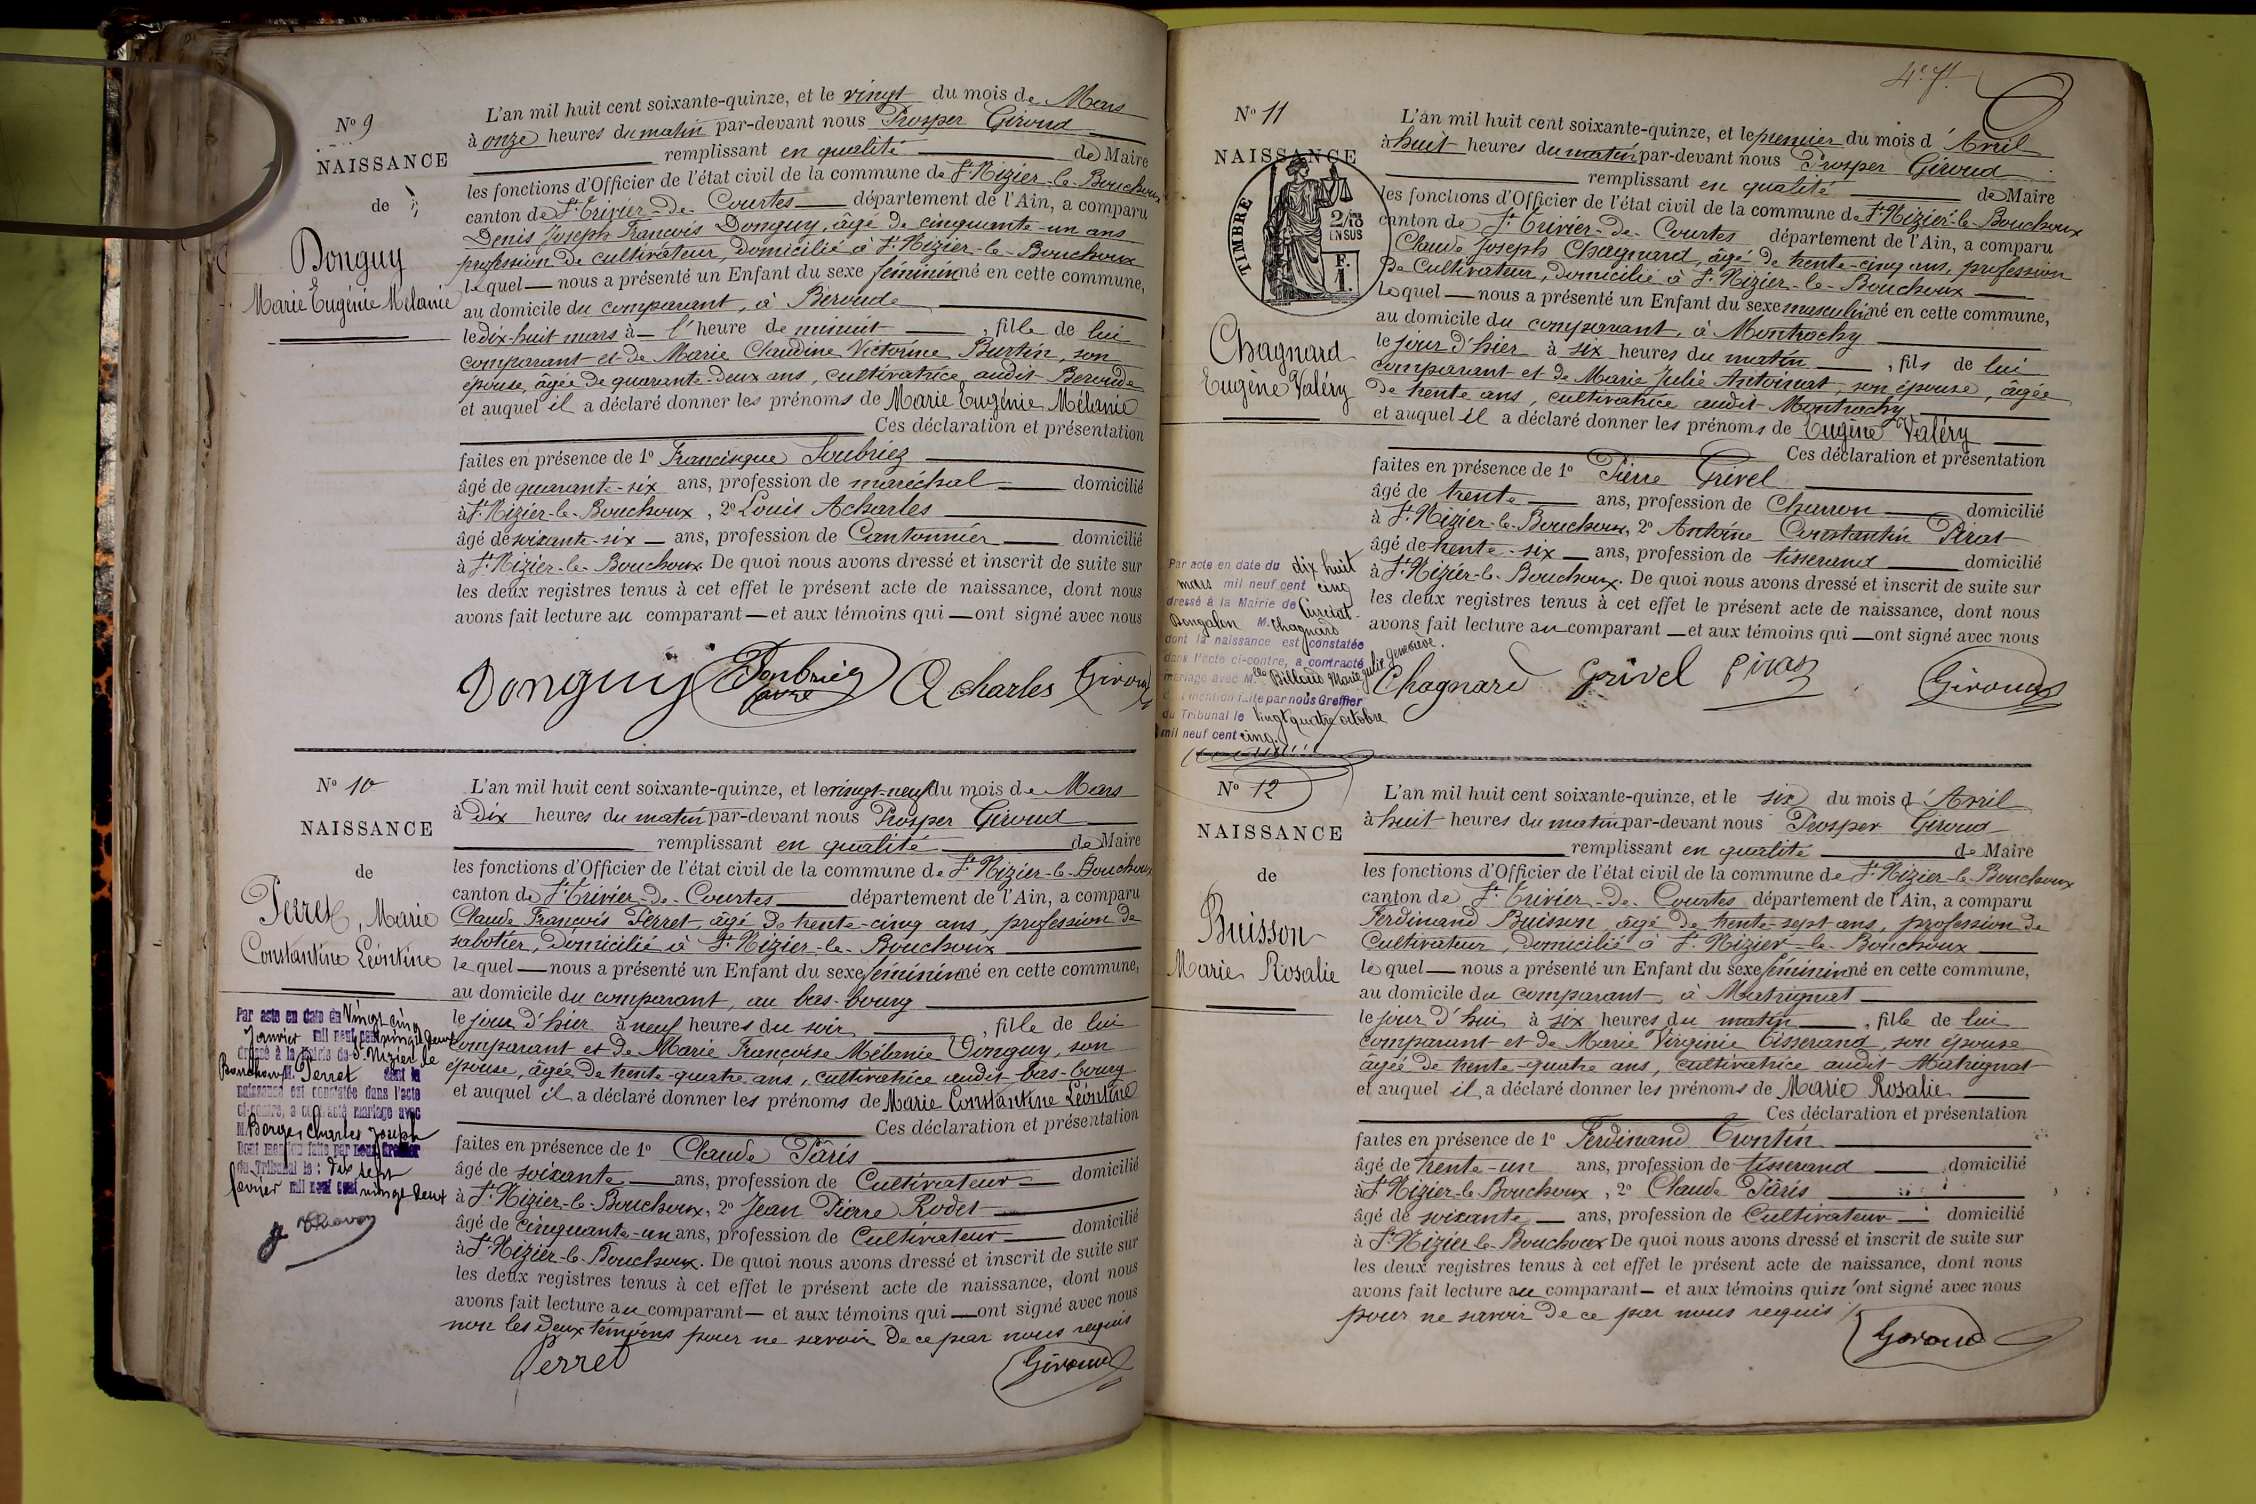 N° 9
NAISSANCE
de
Donguy
Marie Eugénie Mélanie
L'an mil huit cent soixante-quinze, et le vingt du mois de Mars
à onze heures du matin par-devant nous Prosper Giroud
remplissant en qualité de Maire
les fonctions d'Officier de l'état civil de la commune de St Nizier-le-Bouchoux
canton de St Trivier-de-Courtes département de l'Ain, a comparu
Denis Joseph François Donguy, âgé de cinquante-un ans
profession de cultivateur, domicilié à St Nizier-le-Bouchoux
lequel nous a présenté un Enfant du sexe féminin né en cette commune,
au domicile du comparant, à Béroude
le dix-huit mars à l'heure de minuit, fille de lui
comparant et de Marie Claudine Victorine Burtin, son
épouse, âgée de quarante-deux ans, cultivatrice audit Beroude
et auquel il a déclaré donner les prénoms de Marie Eugénie Mélanie
Ces déclaration et présentation
faites en présence de 1° Francisque Soubriez
âgé de quarante-six ans, profession de maréchal domicilié
à St Nizier-le-Bouchoux, 2° Louis Acharles
âgé de soixante-six ans, profession de Cantonnier domicilié
à St Nizier-le-Bouchoux. De quoi nous avons dressé et inscrit de suite sur
les deux registres tenus à cet effet le présent acte de naissance, dont nous
avons fait lecture au comparant et aux témoins qui ont signé avec nous
Donguy Acharles Giroud
N° 10
NAISSANCE
de
Perret, Marie
Constantine Léontine
Par acte en date du Vingt cinq
Janvier mil neuf cent vingt deux
dressé à la Mairie de St Nizier le
Bouchoux M. Perret dont la
naissance est constatée dans l'acte
ci-contre, a contracté mariage avec
M. Borges Charles Joseph
Dont mention faite par nous Greffier
du Tribunal le : dix sept
février mil neuf cent vingt deux
L'an mil huit cent soixante-quinze, et le vingt-neuf du mois de Mars
à Dix heures du matin par-devant nous Prosper Giroud
remplissant en qualité de Maire
les fonctions d'Officier de l'état civil de la commune de St Nizier-le-Bouchoux
canton de St Trivier-de-Courtes département de l'Ain, a comparu
Claude François Perret, âgé de trente-cinq ans, profession de
sabotier, domicilié à St Nizier-le-Bouchoux
lequel nous a présenté un Enfant du sexe féminin né en cette commune,
au domicile du comparant, au bas-bourg
le jour d'hier à neuf heures du soir, fille de lui
comparant et de Marie Françoise Mélanie Donguy, son
épouse, âgée de trente-quatre ans, cultivatrice audit bas-bourg
et auquel il a déclaré donner les prénoms de Marie Constantine Léontine
Ces déclaration et présentation
faites en présence de 1° Claude Pâris
âgé de soixante ans, profession de Cultivateur domicilié
à St Nizier-le-Bouchoux, 2° Jean Pierre Rodet
âgé de cinquante-un ans, profession de Cultivateur domicilié
à St Nizier-le-Bouchoux. De quoi nous avons dressé et inscrit de suite sur
les deux registres tenus à cet effet le présent acte de naissance, dont nous
avons fait lecture au comparant et aux témoins qui ont signé avec nous
non les deux témoins pour ne savoir de ce par nous requis
Perret Giroud
N° 11
NAISSANCE
TIMBRE
2/10 EN SUS
F. 1.
Chagnard
Eugène Valéry
Par acte en date du dix huit
mars mil neuf cent cinq
dressé à la Mairie de Curciat
Dongalon M. Chagnard
dont la naissance est constatée
dans l'acte ci-contre, a contracté
mariage avec Mlle Billoud Marie Julie Geneviève.
mention faite par nous Greffier
du Tribunal le vingt quatre octobre
mil neuf cent cinq.
L'an mil huit cent soixante-quinze, et le premier du mois d'Avril
à huit heures du matin par-devant nous Prosper Giroud
remplissant en qualité de Maire
les fonctions d'Officier de l'état civil de la commune de St Nizier-le-Bouchoux
canton de St Trivier-de-Courtes département de l'Ain, a comparu
Claude Joseph Chagnard, âgé de trente-cinq ans, profession
de Cultivateur, domicilié à St Nizier-le-Bouchoux
lequel nous a présenté un Enfant du sexe masculin né en cette commune,
au domicile du comparant, à Montrachy
le jour d'hier à six heures du matin, fils de lui
comparant et de Marie Julie Antoinat, son épouse, âgée
de trente ans, cultivatrice audit Montrachy
et auquel il a déclaré donner les prénoms de Eugène Valéry
Ces déclaration et présentation
faites en présence de 1° Pierre Grivel
âgé de trente ans, profession de Charron domicilié
à St Nizier-le-Bouchoux, 2° Antoine Constantin Pirat
âgé de trente-six ans, profession de tisserand domicilié
à St Nizier-le-Bouchoux. De quoi nous avons dressé et inscrit de suite sur
les deux registres tenus à cet effet le présent acte de naissance, dont nous
avons fait lecture au comparant et aux témoins qui ont signé avec nous
Chagnard Grivel Pirat Giroud
N° 12
NAISSANCE
de
Buisson
Marie Rosalie
L'an mil huit cent soixante-quinze, et le six du mois d'Avril
à huit heures du matin par-devant nous Prosper Giroud
remplissant en qualité de Maire
les fonctions d'Officier de l'état civil de la commune de St Nizier-le-Bouchoux
canton de St Trivier-de-Courtes département de l'Ain, a comparu
Ferdinand Buisson âgé de trente-sept ans, profession de
Cultivateur, domicilié à St Nizier-le-Bouchoux
lequel nous a présenté un Enfant du sexe féminin né en cette commune,
au domicile du comparant à Matrignat
le jour d'hui à six heures du matin, fille de lui
comparant et de Marie Virginie Tisserand, son épouse
âgée de trente-quatre ans, cultivatrice audit Matrignat
et auquel il a déclaré donner les prénoms de Marie Rosalie
Ces déclaration et présentation
faites en présence de 1° Ferdinand Trontin
âgé de trente-un ans, profession de tisserand domicilié
à St Nizier-le-Bouchoux, 2° Claude Pâris
âgé de soixante ans, profession de Cultivateur domicilié
à St Nizier-le-Bouchoux De quoi nous avons dressé et inscrit de suite sur
les deux registres tenus à cet effet le présent acte de naissance, dont nous
avons fait lecture au comparant et aux témoins qui n'ont signé avec nous
pour ne savoir de ce par nous requis
Giroud